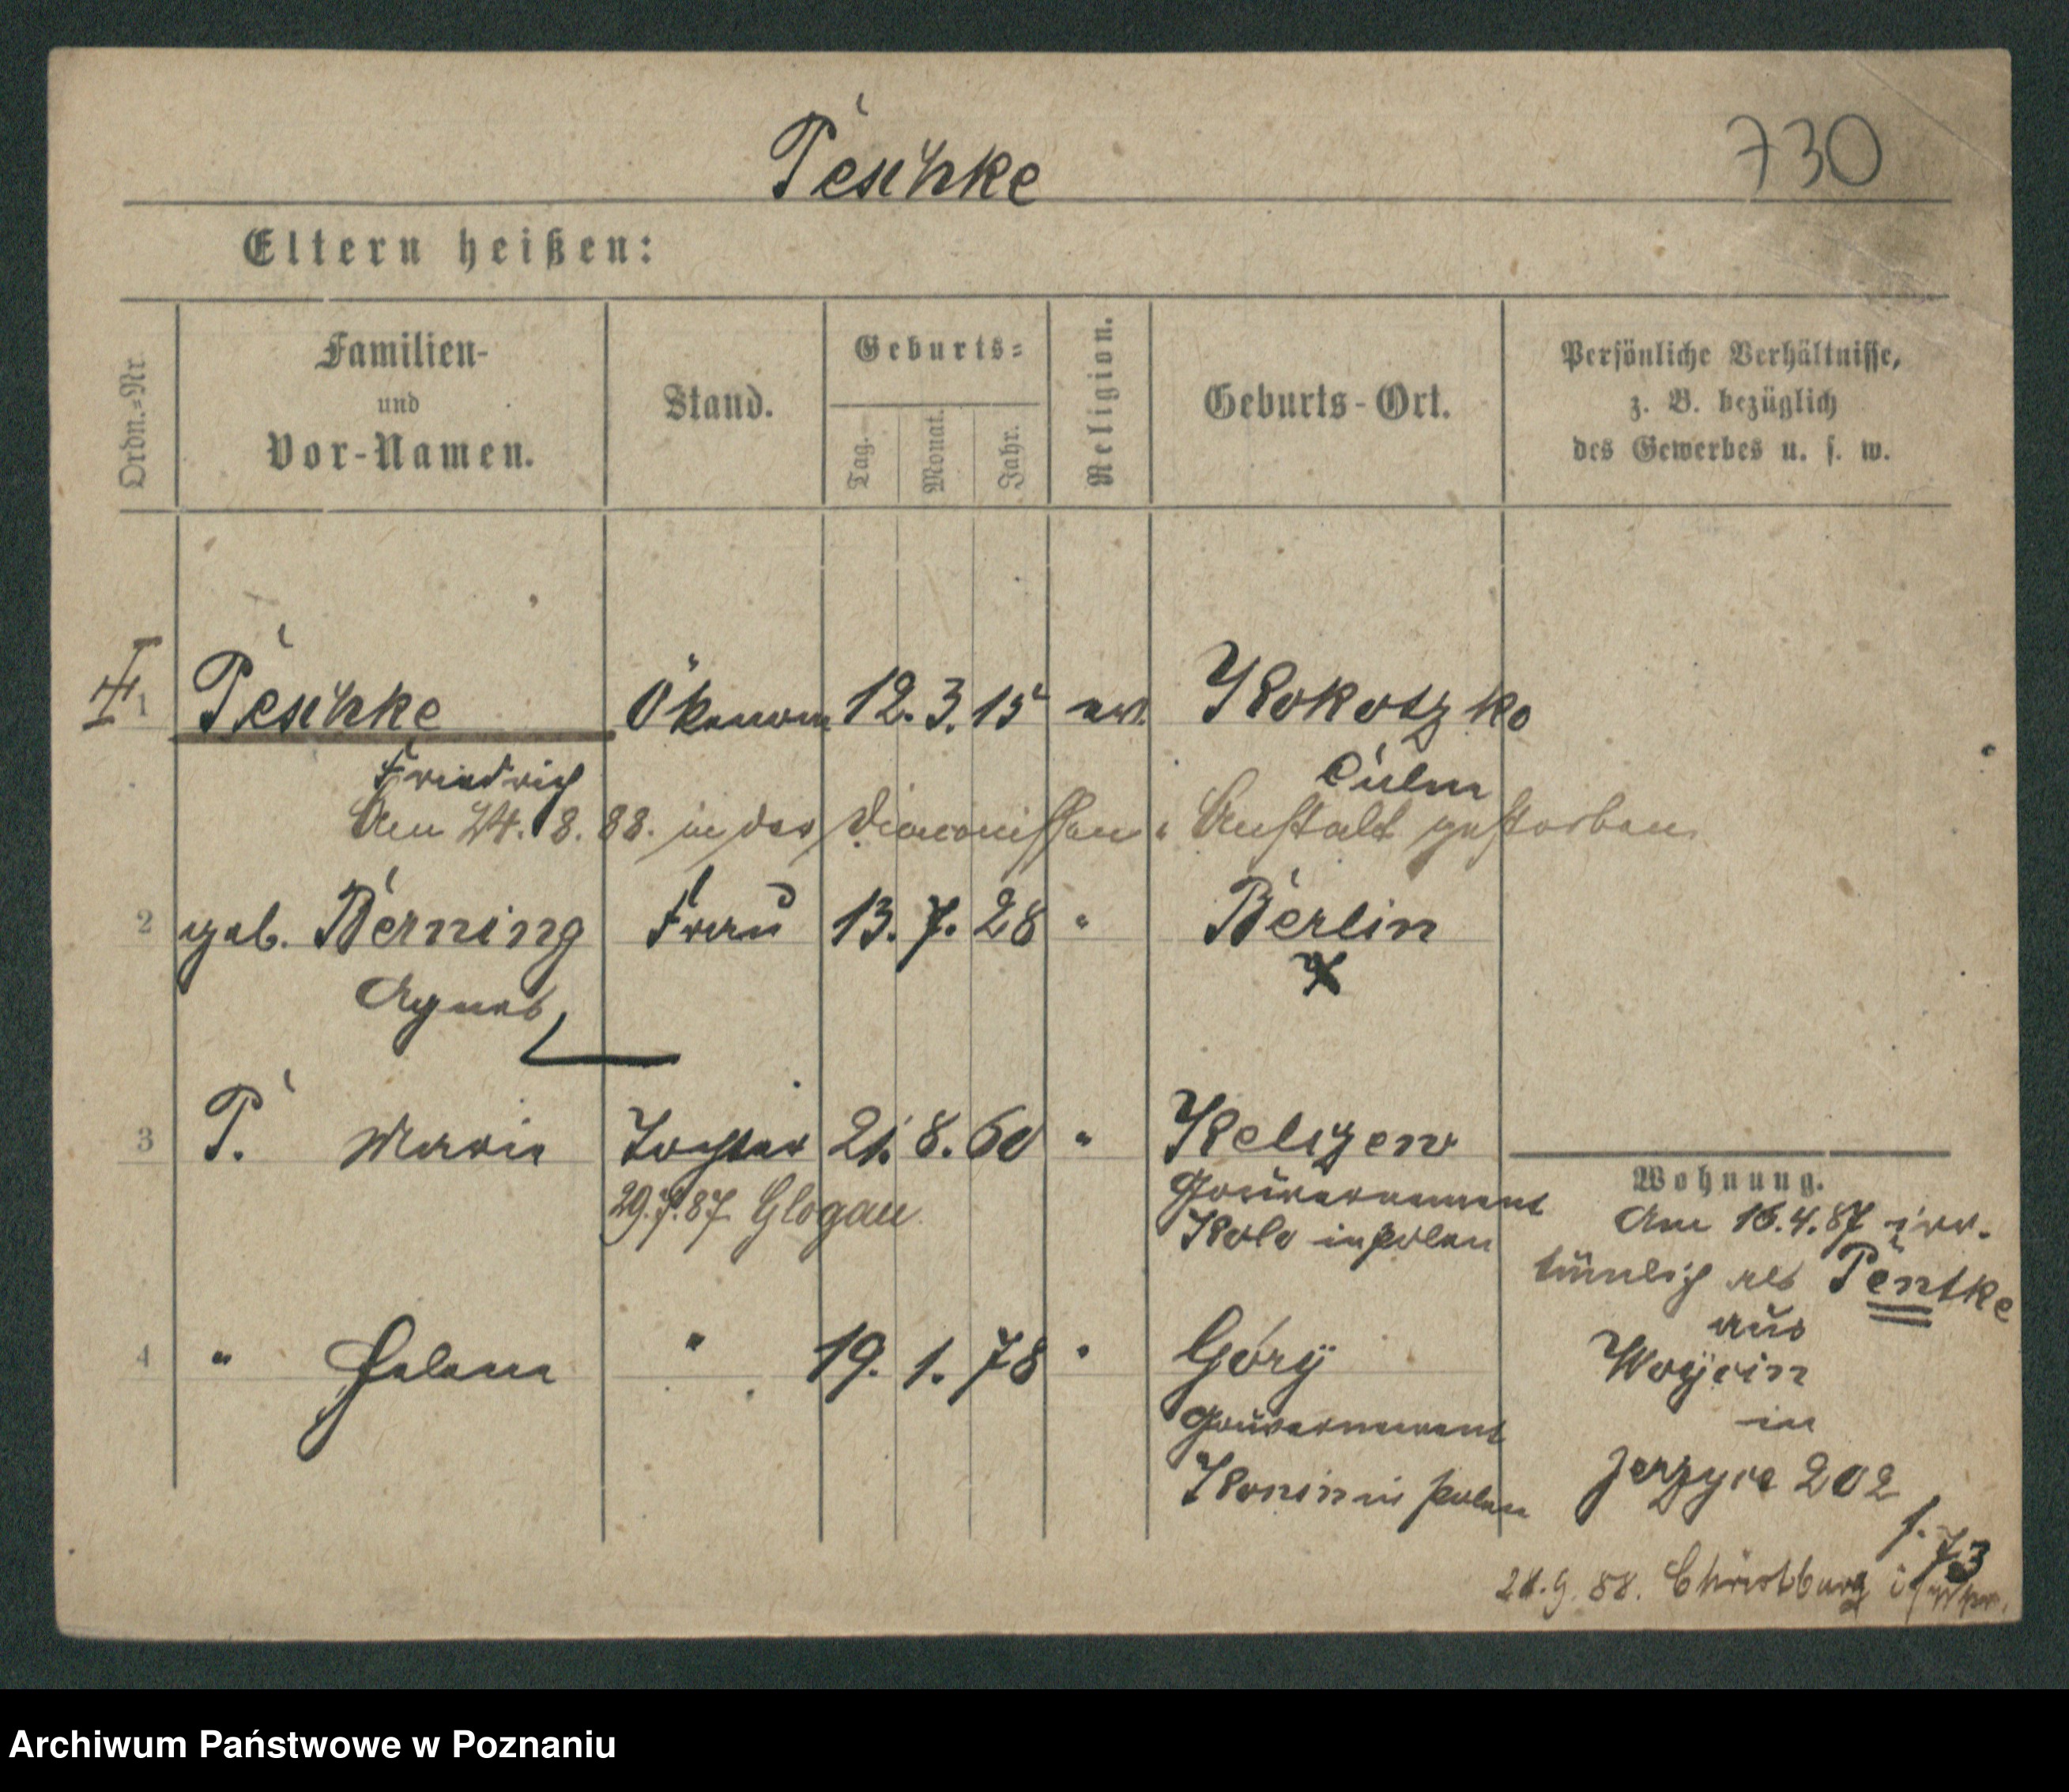 Peschke
730
Eltern heißen:
Ordn.=Nr
Familien-
und
Vor-Namen.
Stand.
Geburts=
Tag.
Monat.
Jahr.
Religion.
Geburts-Ort.
Persönliche Verhältnisse,
z. B. bezüglich
des Gewerbes u. s. w.
I
1 Peschke Ökonom 12. 3. 15 ev. Kokotzko
Friedrich Culm
Am 24. 8. 88. in der Diaconissen Anstalt gestorben
2 geb. Berning Frau 13. 7. 28 " Berlin
Agnes
3 P. Marie Tochter 21. 8. 60 "
29.7.87 Glogau
Gouvernement
Kolo in Polen
4 " Helene " 19. 1. 78 " Góry
Gouvernement
Konin in Polen
Wohnung.
Am 16.4.87 irr-
tümlich als Pentke
aus
Woycin
in
Jerzyce 202
f. 73
21.9.88. Christburg
Archiwum Państwowe w Poznaniu